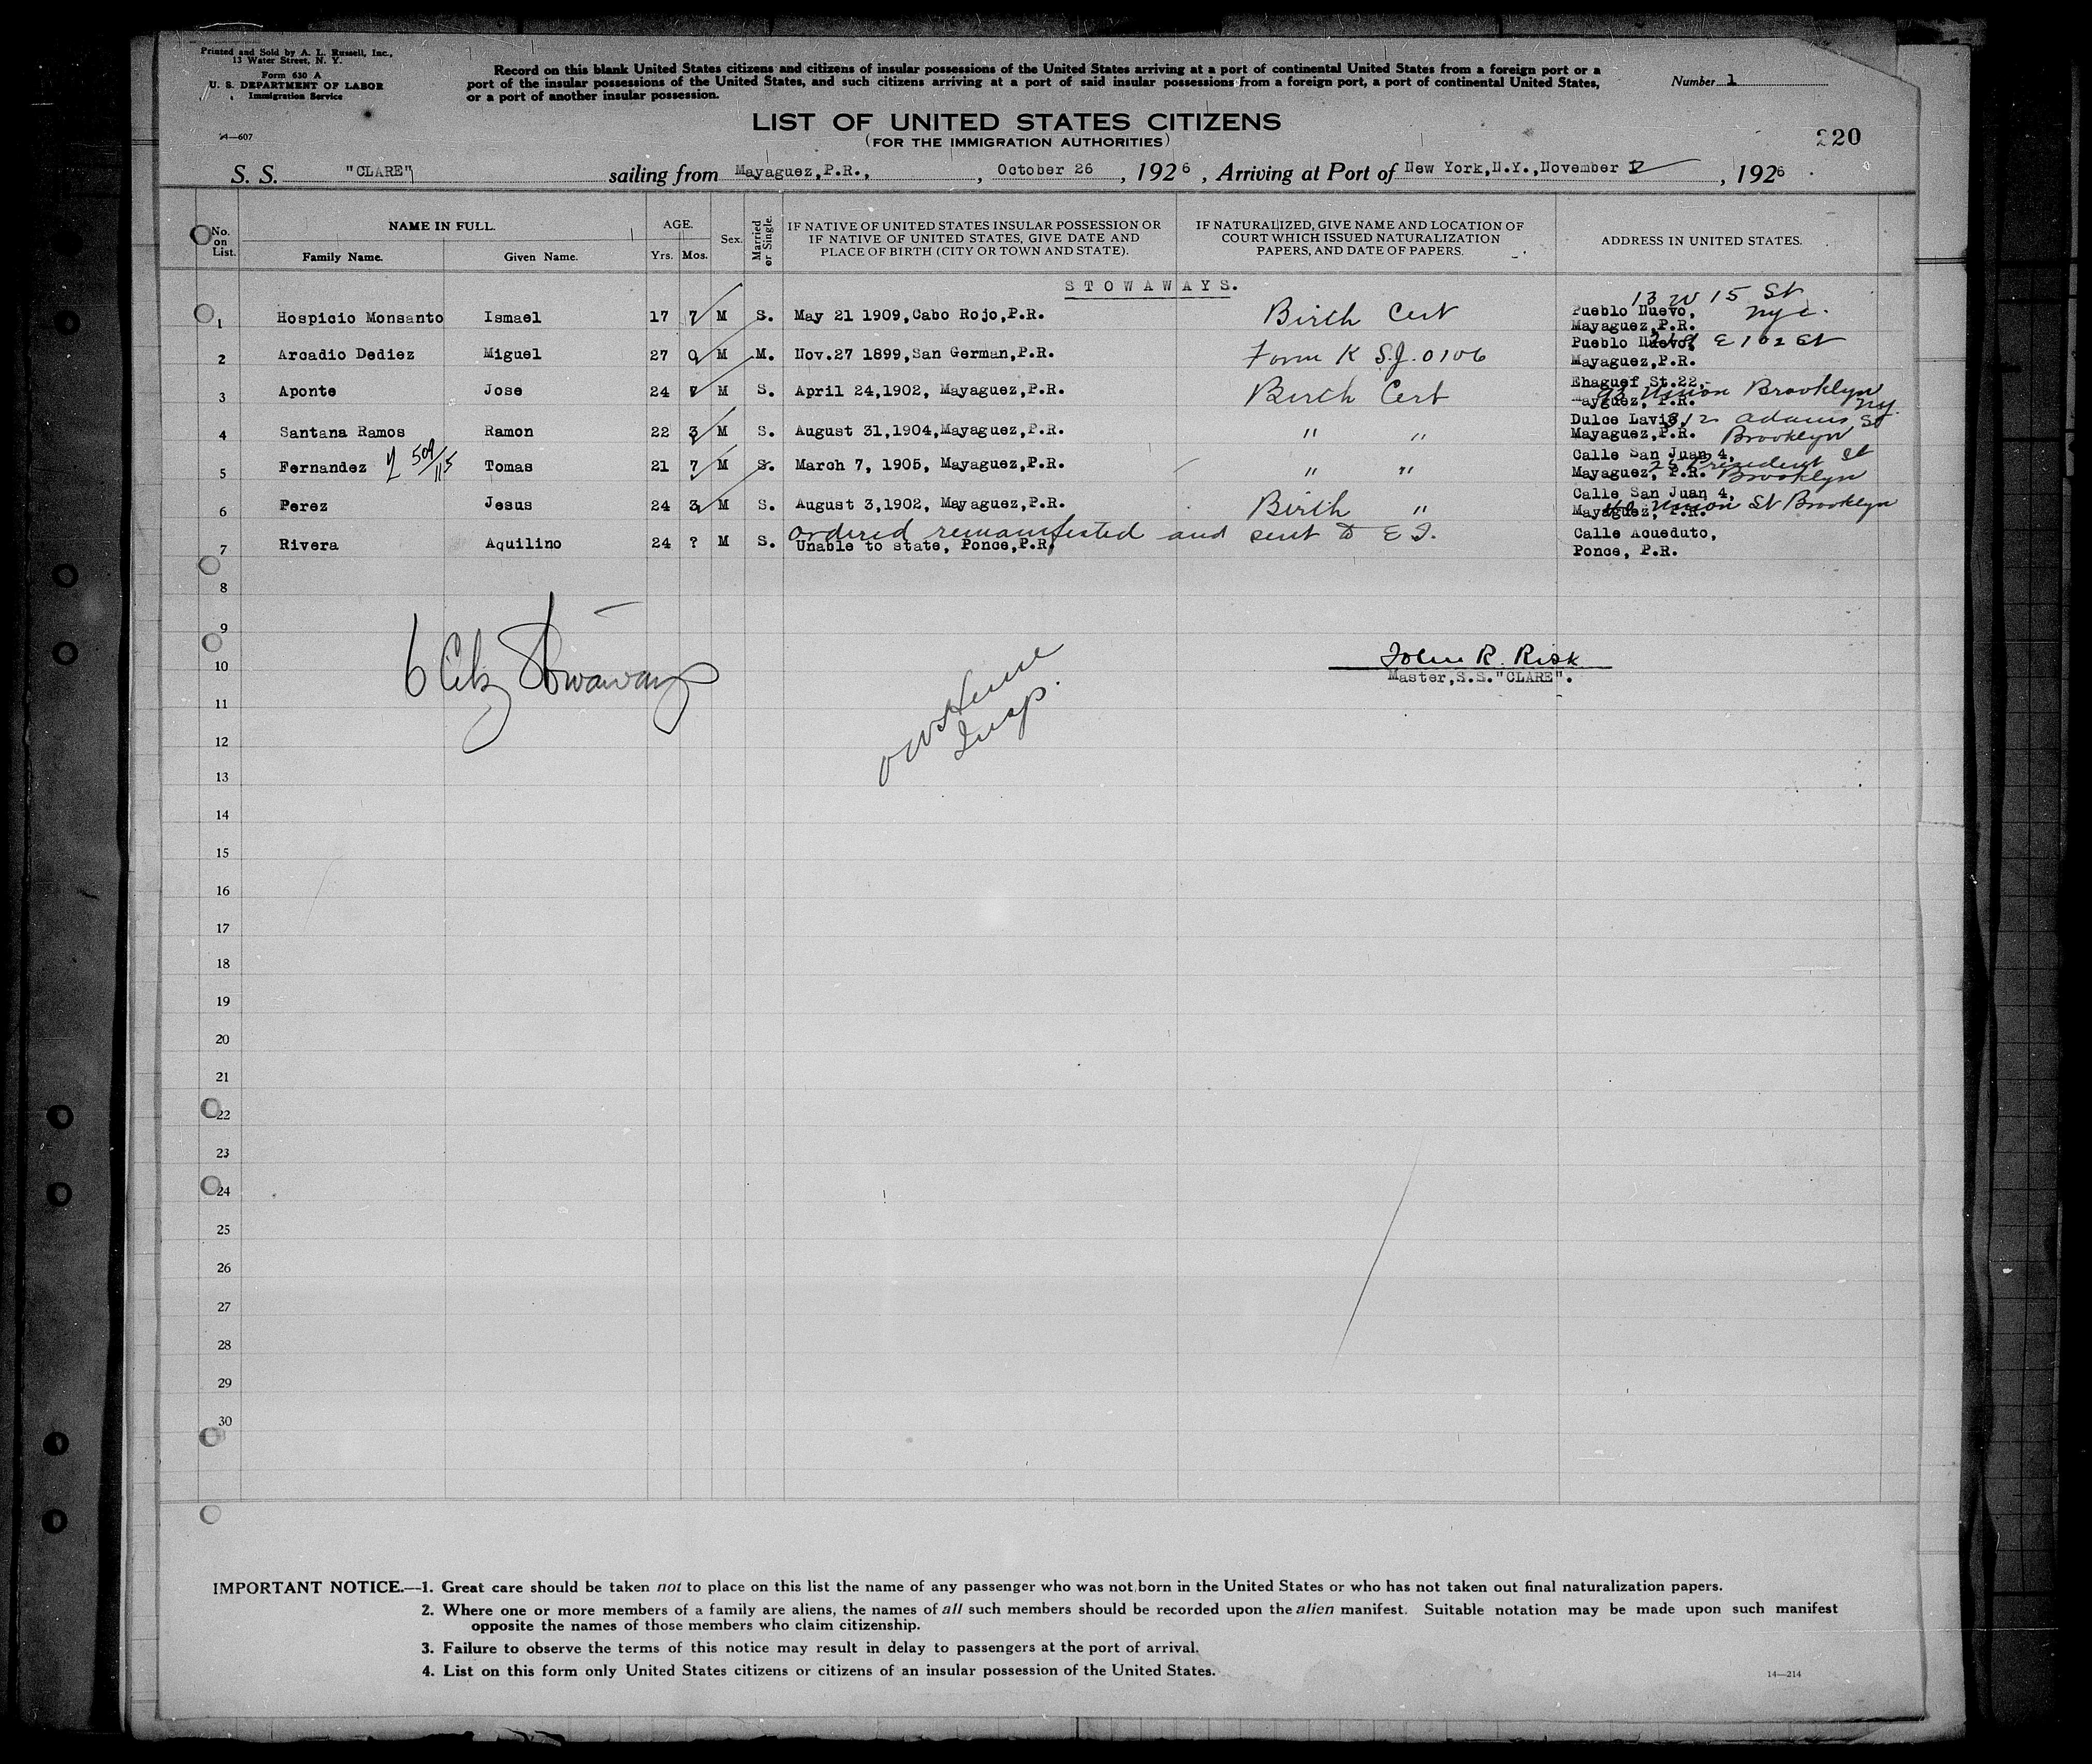 Printed and Sold by A. L. Russell, Inc.,
13 Water Street, N. Y.
Form 630 A
U. S. DEPARTMENT OF LABOR
Immigration Service
Record on this blank United States citizens and citizens of insular possessions of the United States arriving at a port of continental United States from a foreign port or a
port of the insular possessions of the United States, and such citizens arriving at a port of said insular possessions from a foreign port, a port of continental United States,
or a port of another insular possession.
Number 1
A—607
LIST OF UNITED STATES CITIZENS
(FOR THE IMMIGRATION AUTHORITIES)
220
S. S. "CLARE" sailing from Mayaguez,P.R., , October 26 , 1926 , Arriving at Port of New York,N.Y.,November , 1926
No. on List.
NAME IN FULL.
Family Name. Given Name.
AGE.
Yrs. Mos.
Sex.
Married or Single.
IF NATIVE OF UNITED STATES INSULAR POSSESSION OR
IF NATIVE OF UNITED STATES, GIVE DATE AND
PLACE OF BIRTH (CITY OR TOWN AND STATE).
IF NATURALIZED, GIVE NAME AND LOCATION OF
COURT WHICH ISSUED NATURALIZATION
PAPERS, AND DATE OF PAPERS.
ADDRESS IN UNITED STATES.
STOWAWAYS.
13 W 15 St
1 Hospicio Monsanto Ismael 17 7 M S. May 21 1909,Cabo Rojo,P.R. Birth Cert Pueblo Nuevo, NYC.
Mayaguez,P.R.
2 Arcadio Dediez Miguel 27 0 M M. Nov.27 1899,San German,P.R. Form K S.J. 0106 Pueblo Nuevo, E 102 St
Mayaguez,P.R.
3 Aponte Jose 24 M S. April 24,1902, Mayaguez,P.R. Birth Cert Ehaguef St.22,
Mayguez, P.R. Union Brooklyn NY.
4 Santana Ramos Ramon 22 3 M S. August 31,1904,Mayaguez,P.R. " " Dulce Lavis, Adams St
Mayaguez,P.R. Brooklyn
5 Fernandez Tomas 21 7 M S. March 7, 1905, Mayaguez,P.R. " " Calle San Juan 4,
25 President St
Mayaguez, P.R. Brooklyn
6 Perez Jesus 24 3 M S. August 3,1902, Mayaguez,P.R. Birth " Calle San Juan 4,
Mayaguez, P.R. Union St Brooklyn
ordered remanifested and sent to E I.
7 Rivera Aquilino 24 ? M S. Unable to state, Ponce,P.R. Calle Acueduto,
Ponce, P.R.
8
9
6 Citz Stowaways
John R. Risk
10
Master,S.S."CLARE".
11
Insp.
12
13
14
15
16
17
18
19
20
21
22
23
24
25
26
27
28
29
30
IMPORTANT NOTICE.—1. Great care should be taken not to place on this list the name of any passenger who was not born in the United States or who has not taken out final naturalization papers.
2. Where one or more members of a family are aliens, the names of all such members should be recorded upon the alien manifest. Suitable notation may be made upon such manifest
opposite the names of those members who claim citizenship.
3. Failure to observe the terms of this notice may result in delay to passengers at the port of arrival.
4. List on this form only United States citizens or citizens of an insular possession of the United States.
14—214